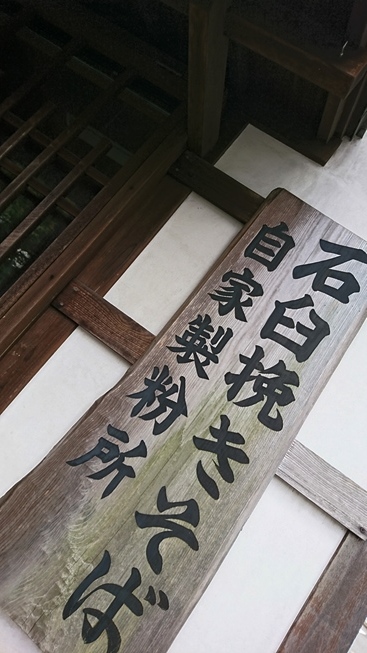 石臼挽きそば
自家製粉所